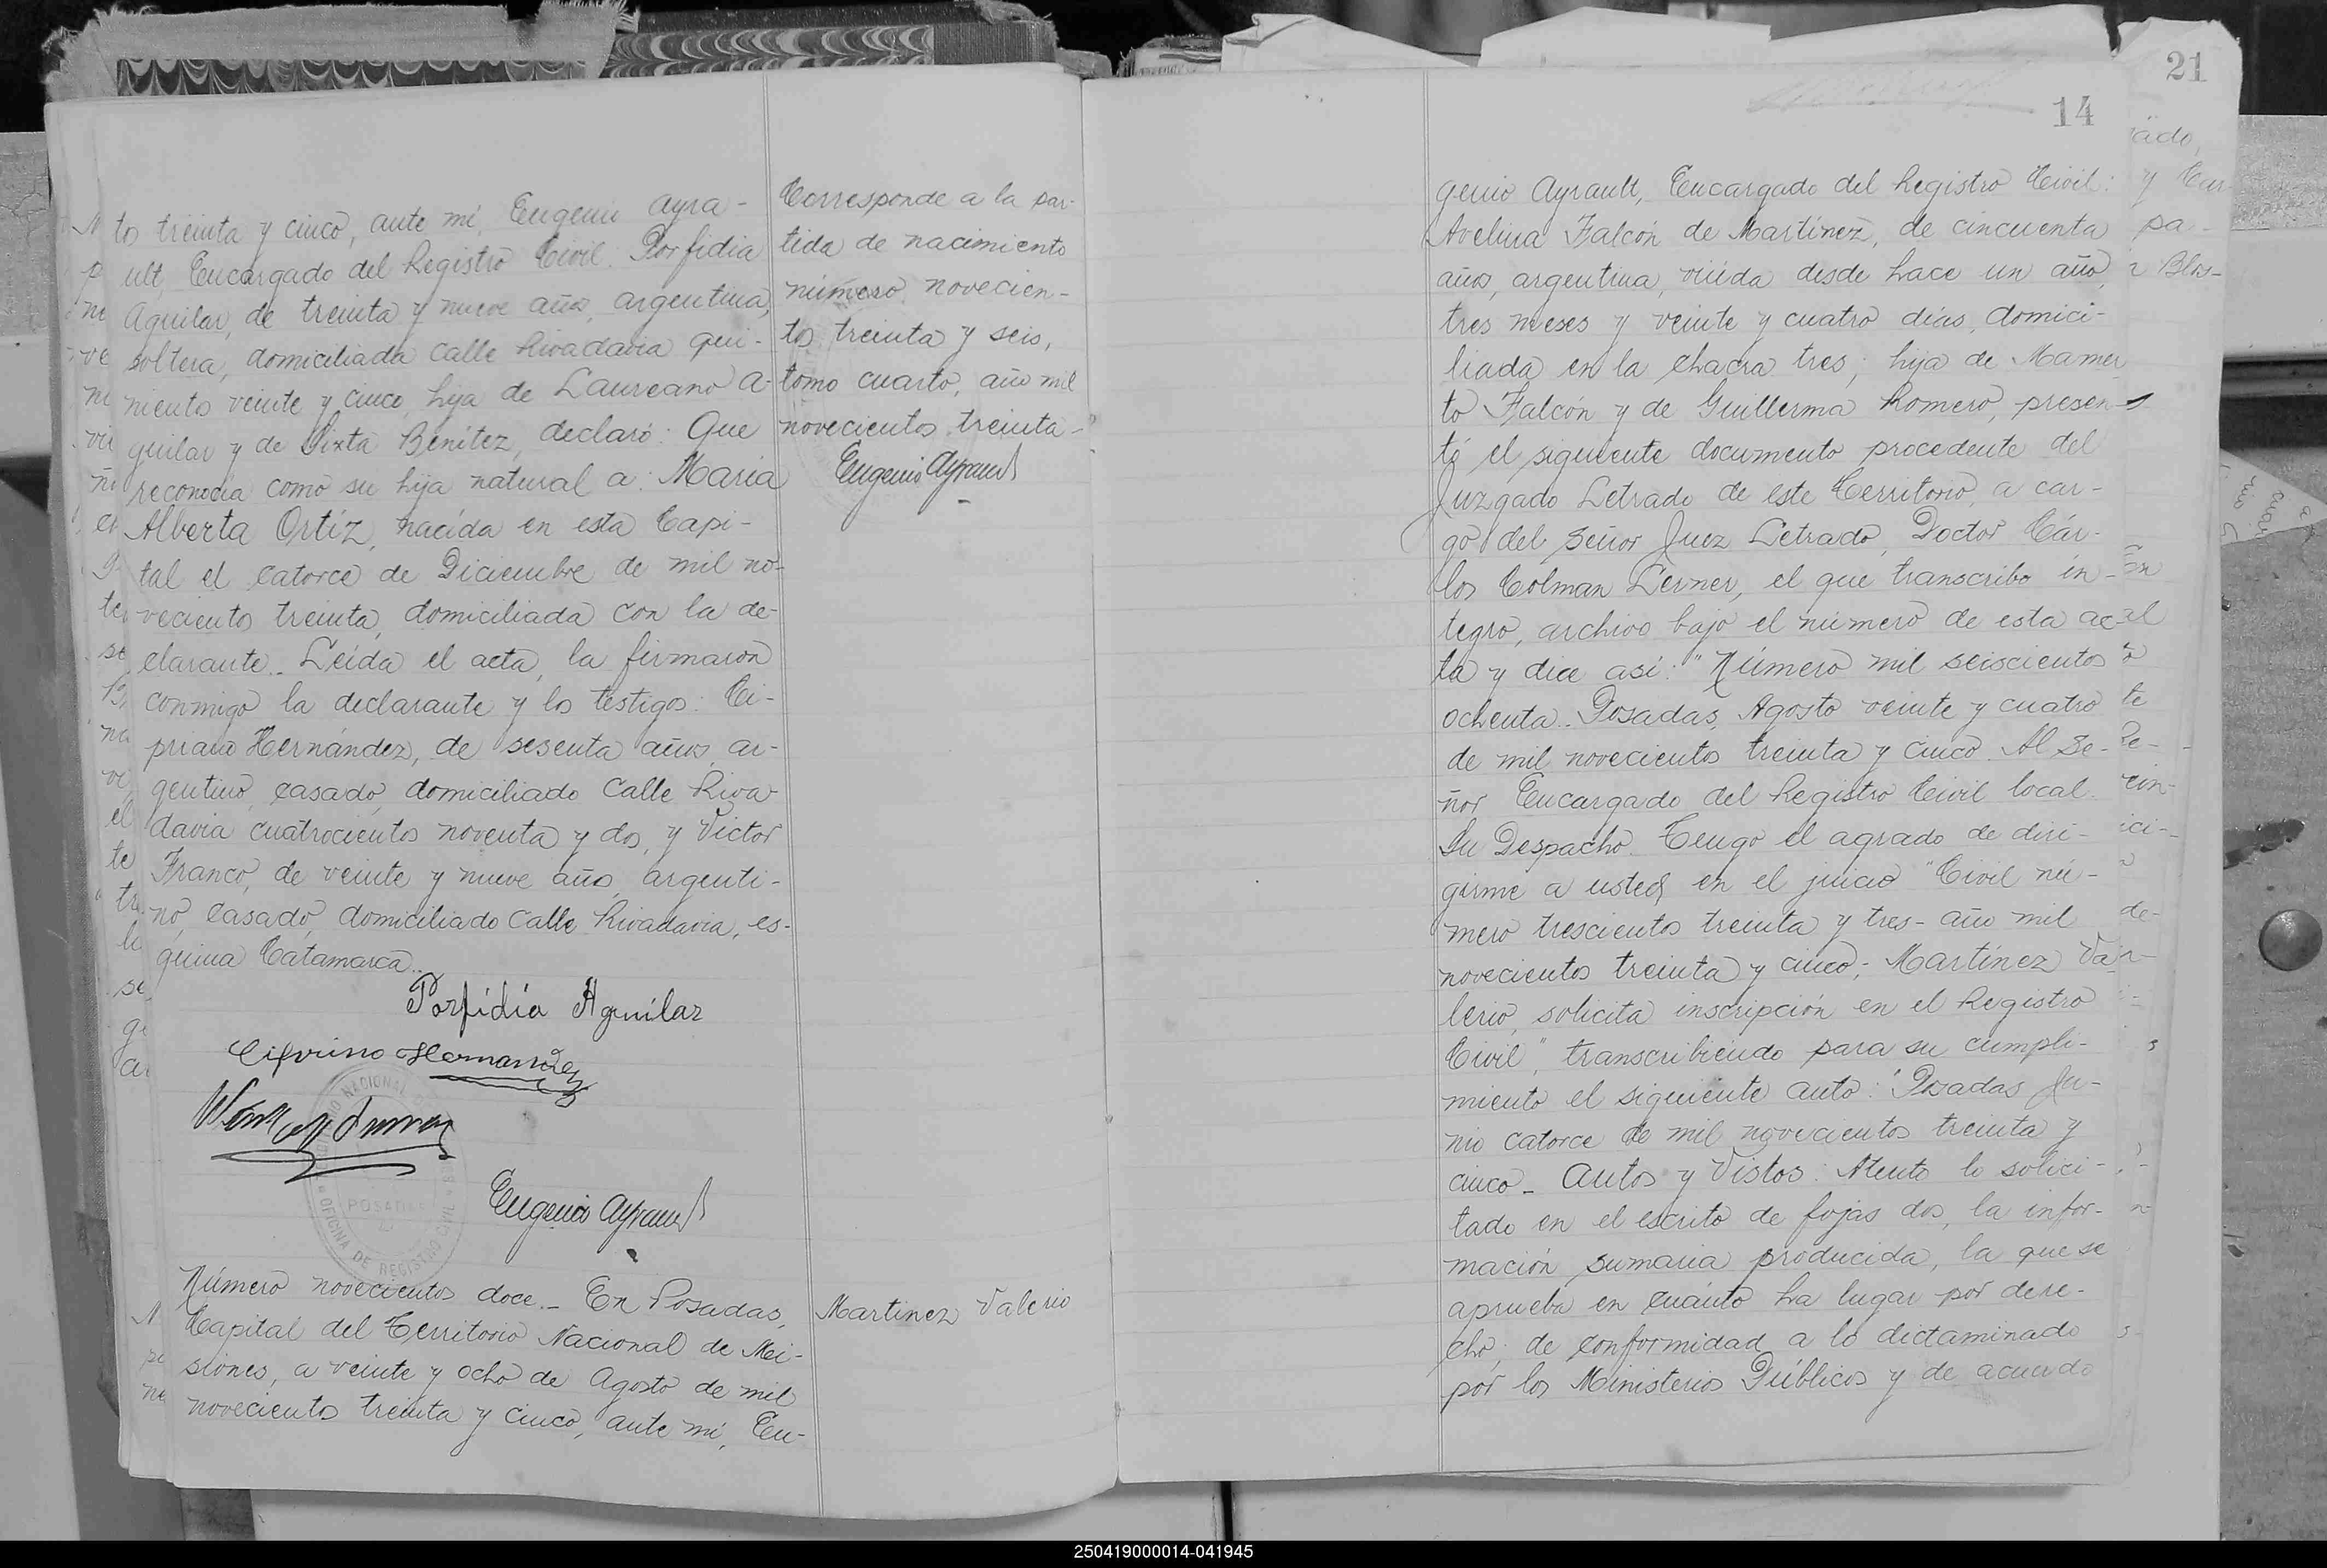 to treinta y cinco, ante mí, Eugenio Ayra-
ult, Encargado del Registro Civil. Porfidia
Aguilar, de treinta y nueve años, argentina,
soltera, domiciliada calle Rivadavia qui-
niento veinte y cinco, hija de Laureano A-
guilar y de Sixta Benítez, declaró: Que
reconocía como su hija natural a: María
Alberta Ortíz, nacída en esta Capi-
tal el catorce de Diciembre de mil no-
veciento treinta, domiciliada con la de-
clarante.. Leída el acta, la firmaron
conmigo la declarante y los testigos: Ci-
priano Hernández, de sesenta años, ar-
gentino, casado, domiciliado Calle Riva-
davia cuatrocientos noventa y dos, y Victor
Franco, de veinte y nueve años, argenti-
no, casado, domiciliado Calle Rivadavia, es-
quina Catamarca..
Porfidia Aguilar
Cipriano Hernandez
Eugenio Ayrault
POSADAS
OFICINA DE REGISTRO CIVIL
Corresponde a la par-
tida de nacimiento
número novecien-
tos treinta y seis,
tomo cuarto, año mil
novecientos treinta-
Eugenio Ayrault
Número novecientos doce.- En Posadas,
Capital del Territorio Nacional de Mi-
siones, a veinte y ocho de Agosto de mil
novecientos treinta y cinco, ante mí, Eu-
Martinez Valerio
21
14
genio Ayrault, Encargado del Registro Civil:
Avelina Falcón de Martínez, de cincuenta
años, argentina, viúda desde hace un año,
tres meses y veinte y cuatro días, domici-
liada en la chacra tres; hija de Mamer
to Falcón y de Guillerma Romero, presen-
tó el siguiente documento procedente del
Juzgado Letrado de este Territorio, a car-
go del Señor Juez Letrado, Doctor Cár-
los Colman Lerner, el que transcribo ín-
tegro, archivo bajo el número de esta ac-
ta y dice así: "Número mil seiscientos
ochenta.. Posadas, Agosto veinte y cuatro
de mil novecientos treinta y cinco. Al Se-
ñor Encargado del Registro Civil local.
Su Despacho. Tengo el agrado de diri-
girme a usted, en el juicio "Civil nú-
mero trescientos treinta y tres- año mil
novecientos treinta y cinco; Martínez Va-
lerio, solicita inscripción en el Registro
Civil", transcribiendo para su cumpli-
miento el siguiente auto: "Posadas Ju-
nio catorce de mil novecientos treinta y
cinco- Autos y Vistos: Atento lo solici-
tado en el escrito de fojas dos, la infor-
mación sumaria producida, la que se
aprueba en cuánto ha lugar por dere-
cho; de conformidad a lo dictaminado
por los Ministerios Públicos y de acuerdo
250419000014-041945